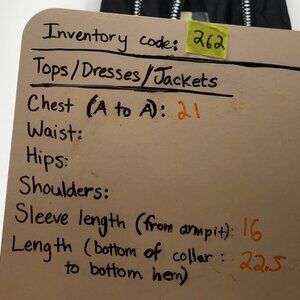 Inventory code: 262
Tops/Dresses/Jackets
Chest (A to A): 21
Waist:
Hips:
Shoulders:
Sleeve length (from armpit): 16
Length (bottom of collar : 22.5
to bottom hem)